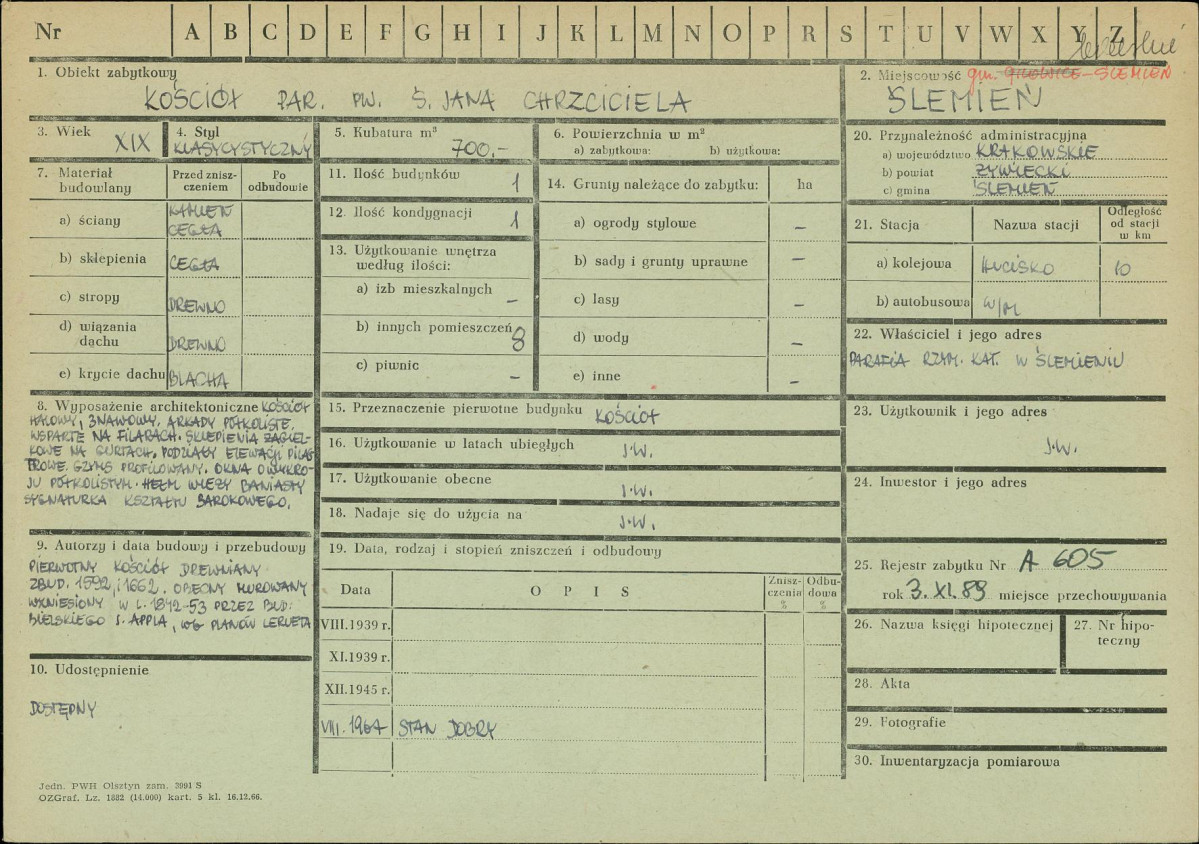 Nr A B C D E F G H I J K L M N O P R S T U V W X Y Z
1. Obiekt zabytkowy
KOŚCIÓŁ PAR. PW. Ś. JANA CHRZCICIELA
2. Miejscowość gm. GILOWICE-ŚLEMIEŃ
ŚLEMIEŃ
3. Wiek XIX
4. Styl
KLASYCYSTYCZNY
5. Kubatura m³
700.-
6. Powierzchnia w m²
a) zabytkowa: b) użytkowa:
7. Materiał budowlany
Przed znisz-
czeniem
Po
odbudowie
a) ściany KAMIEŃ
CEGŁA
b) sklepienia CEGŁA
c) stropy DREWNO
d) wiązania
dachu DREWNO
e) krycie dachu BLACHA
8. Wyposażenie architektoniczne KOŚCIÓŁ
HALOWY, 3NAWOWY. ARKADY PÓŁKOLISTE.
WSPARTE NA FILARACH. SKLEPIENIA ŻAGIEL-
KOWE NA GURTACH. PODZIAŁY ELEWACJI PILAS
TROWE. GZYMS PROFILOWANY. OKNA O WYKRO-
JU PÓŁKOLISTYM. HEŁM WIEŻY BANIASTY
SYGNATURKA KSZTAŁTU BAROKOWEGO.
9. Autorzy i data budowy i przebudowy
PIERWOTNY KOŚCIÓŁ DREWNIANY
ZBUD. 1592, i 1662. OBECNY MUROWANY
WZNIESIONY W L. 1842-53 PRZEZ BUD:
BIELSKIEGO J. APPLA, WG PLANÓW LERUETA
10. Udostępnienie
DOSTĘPNY
Jedn. PWH Olsztyn zam. 3991 S
OZGraf. Lz. 1882 (14.000) kart. 5 kl. 16.12.66.
11. Ilość budynków 1
12. Ilość kondygnacji 1
13. Użytkowanie wnętrza
według ilości:
a) izb mieszkalnych -
b) innych pomieszczeń 8
c) piwnic -
14. Grunty należące do zabytku: ha
a) ogrody stylowe -
b) sady i grunty uprawne -
c) lasy -
d) wody -
e) inne -
15. Przeznaczenie pierwotne budynku KOŚCIÓŁ
16. Użytkowanie w latach ubiegłych J.W.
17. Użytkowanie obecne J.W.
18. Nadaje się do użycia na J.W.
19. Data, rodzaj i stopień zniszczeń i odbudowy
Data OPIS
Znisz-
czenia
%
Odbu-
dowa
%
VIII.1939 r.
XI.1939 r.
XII.1945 r.
VIII.1964 STAN DOBRY
20. Przynależność administracyjna
a) województwo KRAKOWSKIE
b) powiat ŻYWIECKI
c) gmina ŚLEMIEŃ
21. Stacja Nazwa stacji
Odległość
od stacji
w km
a) kolejowa HUCISKO 10
b) autobusowa W/M
22. Właściciel i jego adres
PARAFIA RZYM. KAT. W ŚLEMIENIU
23. Użytkownik i jego adres
J.W.
24. Inwestor i jego adres
25. Rejestr zabytku Nr A 605
rok 3.XI.89 miejsce przechowywania
26. Nazwa księgi hipotecznej
27. Nr hipo-
teczny
28. Akta
29. Fotografie
30. Inwentaryzacja pomiarowa